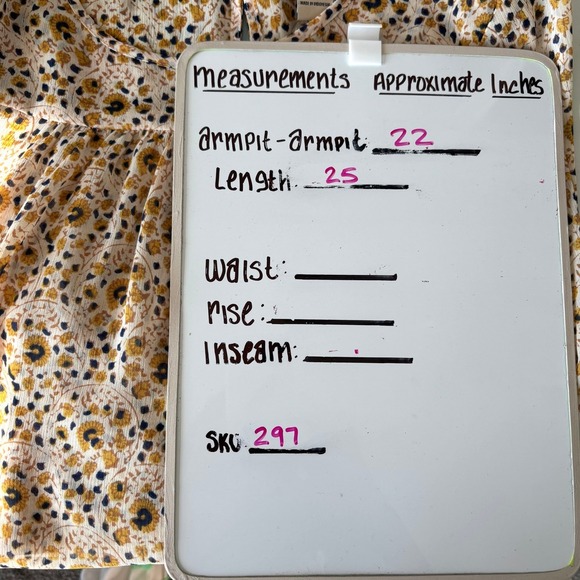 measurements Approximate Inches
armpit-armpit: 22
Length: 25
waist:
rise:
Inseam:
SKU: 297